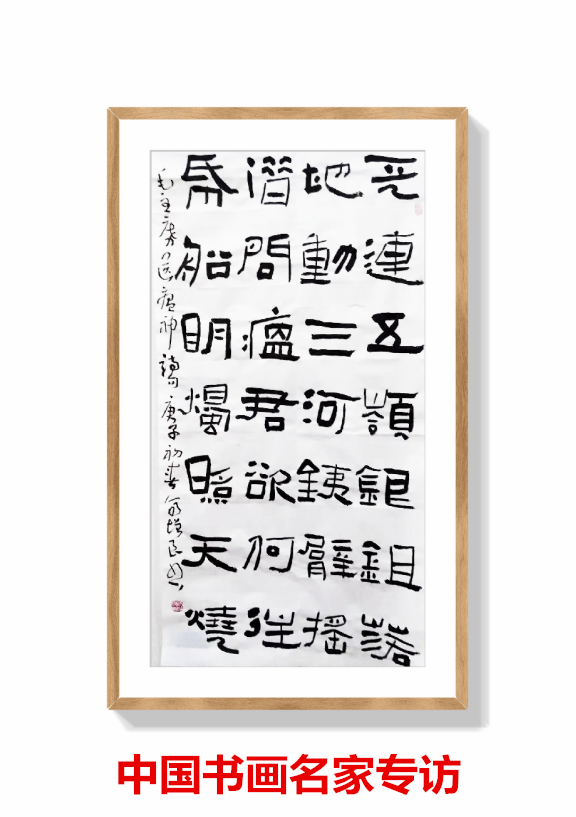 天連五嶺銀鉏落
地動三河銕臂搖
借問瘟君欲何往
帋船明燭照天燒
毛主席送瘟神 庚子初春
中国书画名家专访